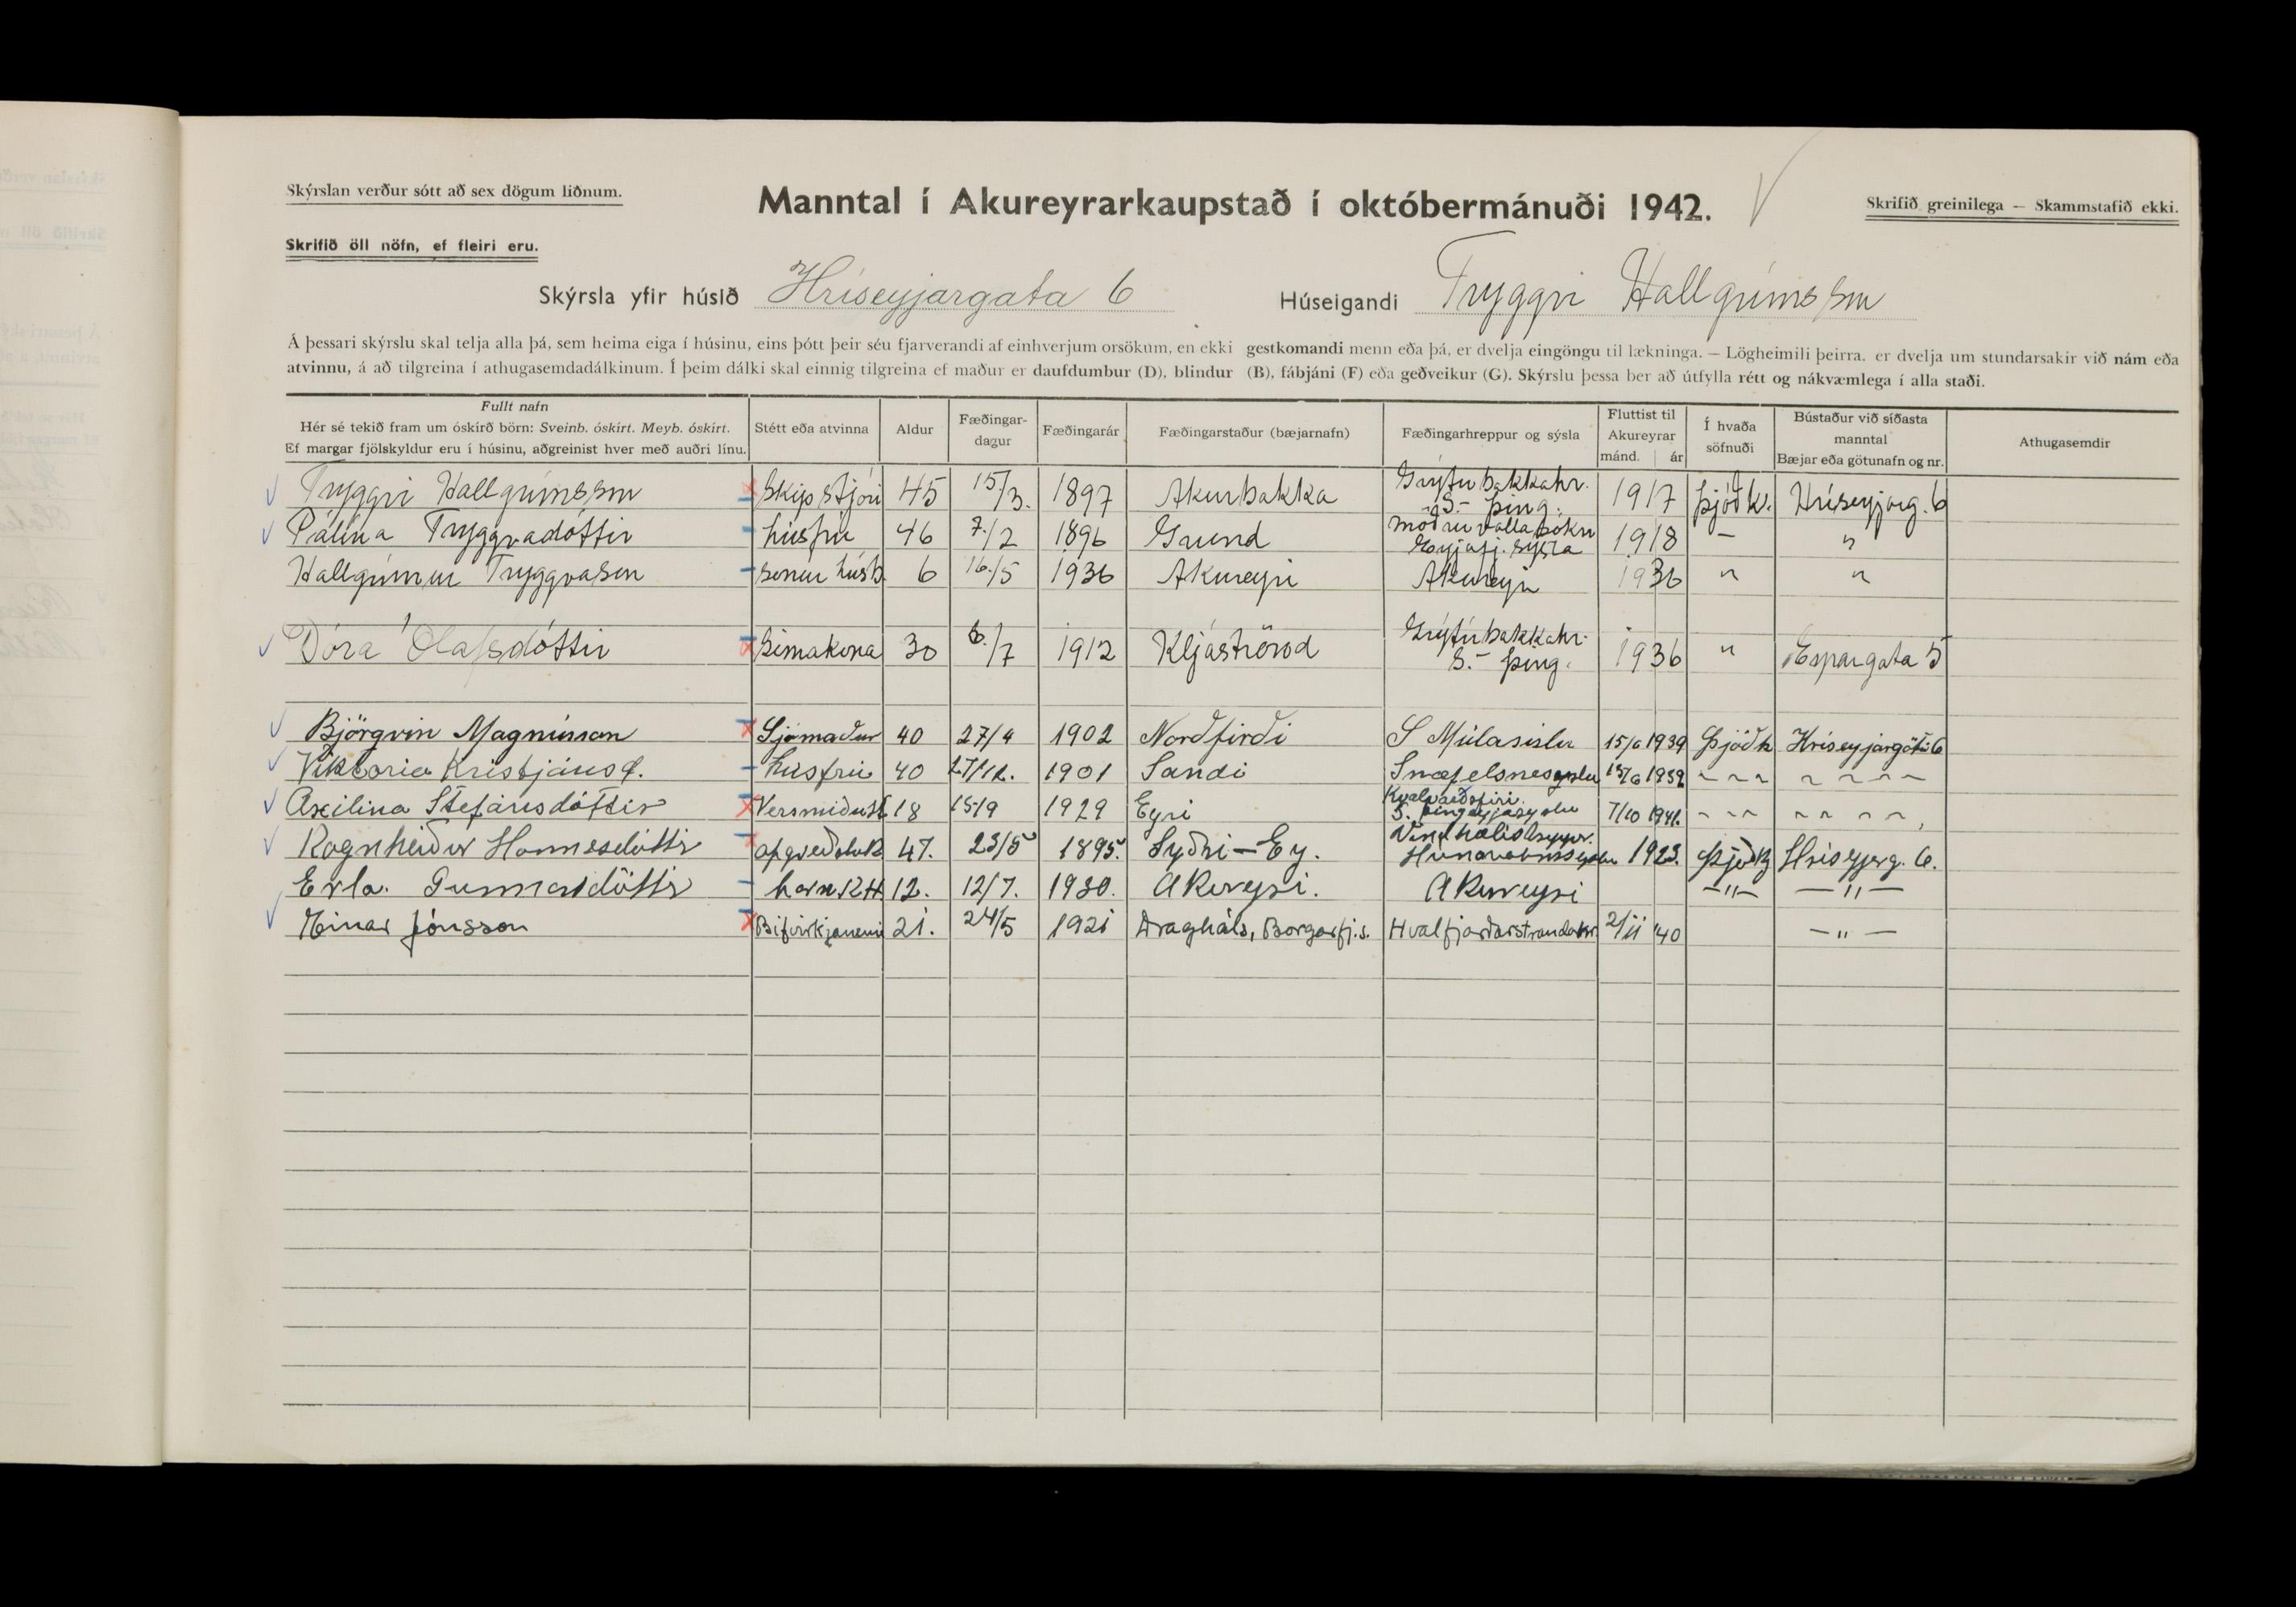 Skýrslan verður sótt að sex dögum liðnum.
Manntal í Akureyrarkaupstað í októbermánuði 1942.
Skrifið greinilega — Skammstafið ekki.
Skrifið öll nöfn, ef fleiri eru.
Skýrsla yfir húsið Hríseyjargata 6 Húseigandi Tryggvi Hallgrímsson
Á þessari skýrslu skal telja alla þá, sem heima eiga í húsinu, eins þótt þeir séu fjarverandi af einhverjum orsökum, en ekki gestkomandi menn eða þá, er dvelja eingöngu til lækninga. — Lögheimili þeirra, er dvelja um stundarsakir við nám eða
atvinnu, á að tilgreina í athugasemdadálkinum. Í þeim dálki skal einnig tilgreina ef maður er daufdumbur (D), blindur (B), fábjáni (F) eða geðveikur (G). Skýrslu þessa ber að útfylla rétt og nákvæmlega í alla staði.
Fullt nafn
Hér sé tekið fram um óskírð börn: Sveinb. óskírt. Meyb. óskírt.
Ef margar fjölskyldur eru í húsinu, aðgreinist hver með auðri línu.
Stétt eða atvinna
Aldur
Fæðingar-
dagur
Fæðingarár
Fæðingarstaður (bæjarnafn)
Fæðingarhreppur og sýsla
Fluttist til
Akureyrar
mánd. ár
Í hvaða
söfnuði
Bústaður við síðasta
manntal
Bæjar eða götunafn og nr.
Athugasemdir
Tryggvi Hallgrímsson Skipstjóri 45 15/3. 1897 Akurbakka Grýtubakkahr. S.- Þing. 1917 Þjóðk. Hríseyjarg. 6
Pálína Tryggvadóttir húsfrú 46 7./2 1896 Grund Möðruvallasókn Eyjafj. sýsla 1918 — "
Hallgrímur Tryggvason sonur húsb. 6 16./5 1936 Akureyri Akureyri 1936 " "
Dóra Ólafsdóttir Símakona 30 6./7 1912 Kljáströnd Grýtubakkahr. S.- Þing. 1936 " Espargata 5
Björgvin Magnússon Sjómaður 40 27/4 1902 Norðfirði S Múlasislu 15/6 1939 Þjóðk Hríseyjargötu 6
Viktoria Kristjánsd. húsfrú 40 27/12. 1901 Sandi Snæfelsnessyslu 15/6 1939 " " " " " " "
Axilina Stefánsdóttir 18 15/9 1929 Eyri S. Þingeyjasyslu 7/10 1941. " " " " " " "
Ragnheiður Hannesdóttir 47. 23/5 1895. Syðri—Ey. Vindhælishreppur. 1923. Þjóðk Hríseyjarg. 6.
Erla. Gunnarsdóttir barn RH 12. 12/7. 1930. Akureyri. Akureyri —"— —"—
Einar Jónsson Bifvirkjanemi 21. 24/5 1921 Draghals, Borgarfj.s. Hvalfjarðarstrandahr. 2/11 '40 —"—